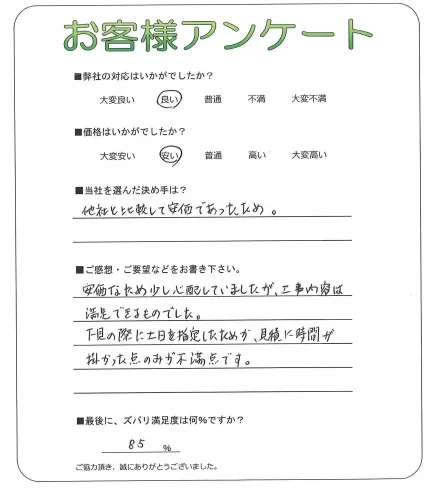 お客様アンケート
■弊社の対応はいかがでしたか？
大変良い 良い 普通 不満 大変不満
■価格はいかがでしたか？
大変安い 安い 普通 高い 大変高い
■当社を選んだ決め手は？
他社と比較して安価であったため。
■ご感想・ご要望などをお書き下さい。
安価なため少し心配していましたが、工事内容は
満足できるものでした。
下見の際に土日を指定したためか、見積に時間が
掛かった点のみが不満点です。
■最後に、ズバリ満足度は何%ですか？
85 %
ご協力頂き、誠にありがとうございました。